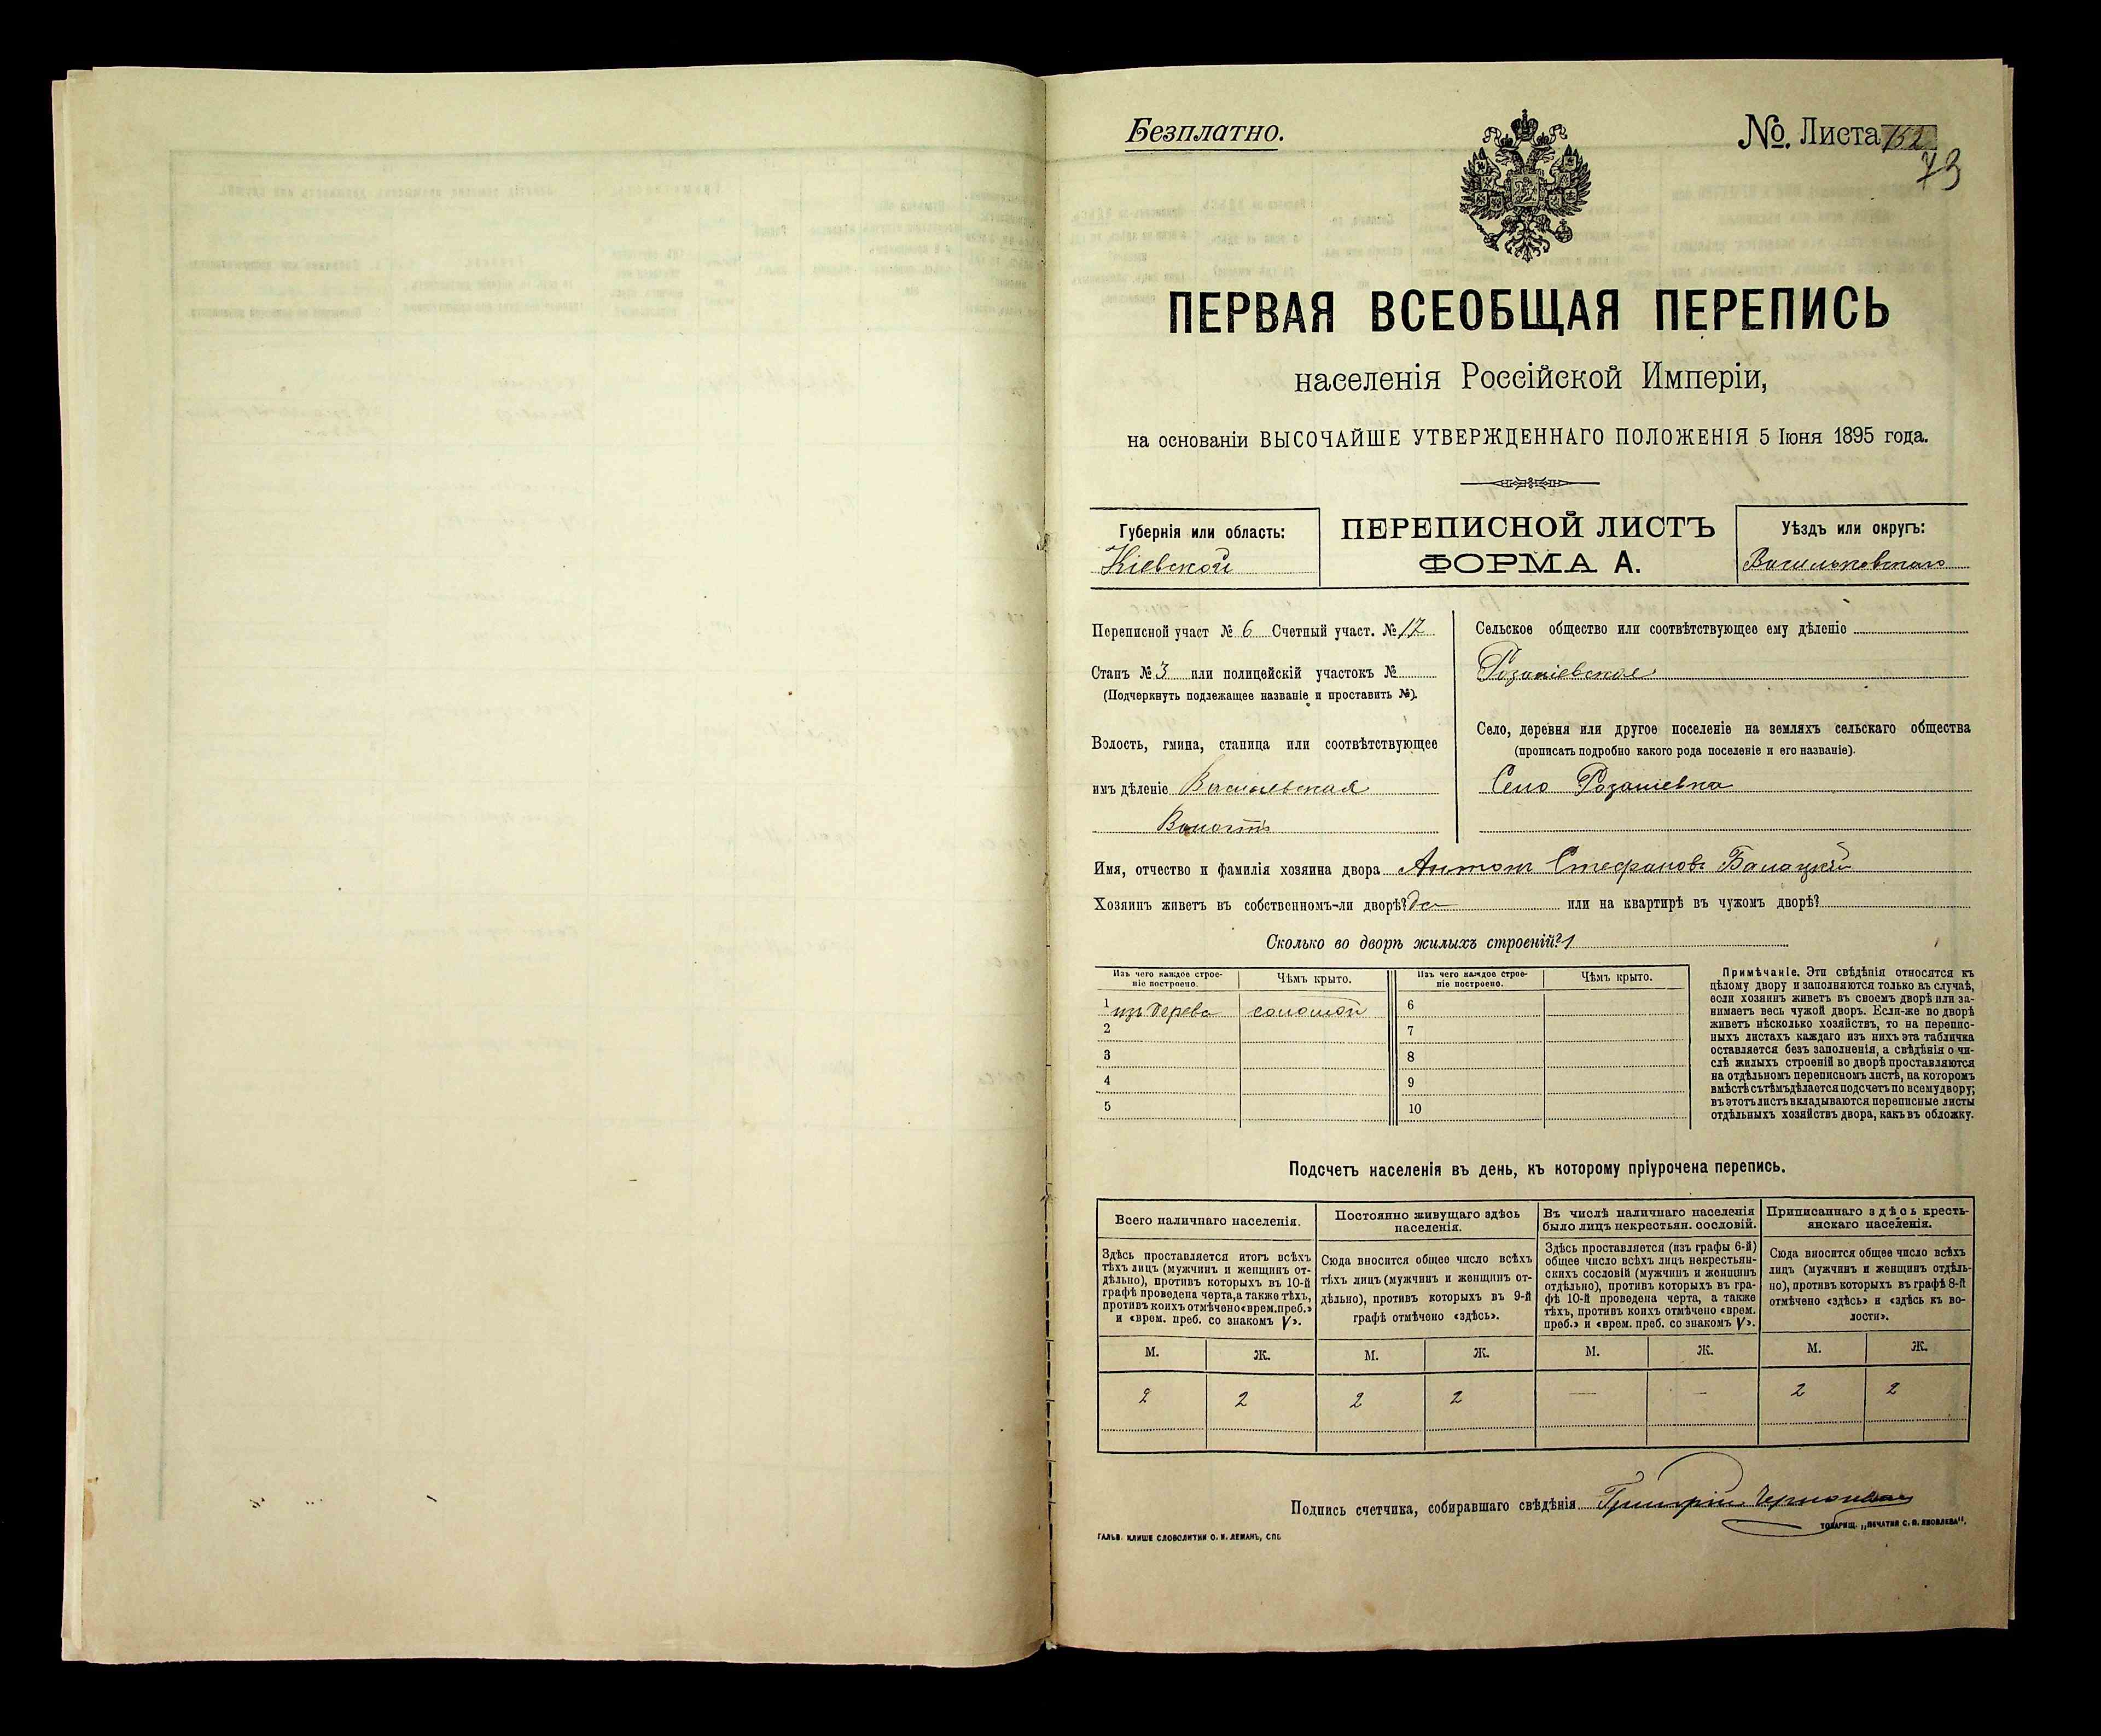 Безплатно.
№. Листа 152
73
ПЕРВАЯ ВСЕОБЩАЯ ПЕРЕПИСЬ
населенія Россійской Имперіи,
на основаніи ВЫСОЧАЙШЕ УТВЕРЖДЕННАГО ПОЛОЖЕНІЯ 5 Іюня 1895 года.
Губернія или область:
Кіевской
ПЕРЕПИСНОЙ ЛИСТЪ
ФОРМА А.
Уѣздъ или округъ:
Васильковскаго
Переписной участ № 6 Счетный участ. № 17
Станъ № 3 или полицейскій участокъ №
(Подчеркнуть подлежащее названіе и проставить №).
Волость, гмина, станица или соотвѣтствующее
имъ дѣленіе
Волость
Сельское общество или соотвѣтствующее ему дѣленіе
Село, деревня или другое поселеніе на земляхъ сельскаго общества
(прописать подробно какого рода поселеніе и его названіе).
Село
Имя, отчество и фамилія хозяина двора Антонъ Стефановъ
Хозяинъ живетъ въ собственномъ-ли дворѣ? да или на квартирѣ въ чужомъ дворѣ?
Сколько во дворѣ жилыхъ строеній? 1
Изъ чего каждое строе-
ніе построено.
Чѣмъ крыто.
1 изъ дерева соломой
2
3
4
5
Изъ чего каждое строе-
ніе построено.
Чѣмъ крыто.
6
7
8
9
10
Примѣчаніе. Эти свѣдѣнія относятся къ
цѣлому двору и заполняются только въ случаѣ,
если хозяинъ живетъ въ своемъ дворѣ или за-
нимаетъ весь чужой дворъ. Если-же во дворѣ
живетъ нѣсколько хозяйствъ, то на перепис-
ныхъ листахъ каждаго изъ нихъ эта табличка
оставляется безъ заполненія, а свѣдѣнія о чи-
слѣ жилыхъ строеній во дворѣ проставляются
на отдѣльномъ переписномъ листѣ, на которомъ
вмѣстѣ съ тѣмъ дѣлается подсчетъ по всему двору;
въ этотъ листъ вкладываются переписные листы
отдѣльныхъ хозяйствъ двора, какъ въ обложку.
Подсчетъ населенія въ день, къ которому пріурочена перепись.
Всего наличнаго населенія.
Здѣсь проставляется итогъ всѣхъ
тѣхъ лицъ (мужчинъ и женщинъ от-
дѣльно), противъ которыхъ въ 10-й
графѣ проведена черта, а также тѣхъ,
противъ коихъ отмѣчено «врем. преб.»
и «врем. преб. со знакомъ V».
Постоянно живущаго здѣсь
населенія.
Сюда вносится общее число всѣхъ
тѣхъ лицъ (мужчинъ и женщинъ от-
дѣльно), противъ которыхъ въ 9-й
графѣ отмѣчено «здѣсь».
Въ числѣ наличнаго населенія
было лицъ некрестьян. сословій.
Здѣсь проставляется (изъ графы 6-й)
общее число всѣхъ лицъ некрестьян-
скихъ сословій (мужчинъ и женщинъ
отдѣльно), противъ которыхъ въ гра-
фѣ 10-й проведена черта, а также
тѣхъ, противъ коихъ отмѣчено «врем.
преб.» и «врем. преб. со знакомъ V».
Приписаннаго здѣсь кресть-
янскаго населенія.
Сюда вносится общее число всѣхъ
лицъ (мужчинъ и женщинъ отдѣль-
но), противъ которыхъ въ графѣ 8-й
отмѣчено «здѣсь» и «здѣсь къ во-
лости».
М. Ж. М. Ж. М. Ж. М. Ж.
2 2 2 2 — — 2 2
Подпись счетчика, собиравшаго свѣдѣнія
ГАЛЬВ. КЛИШЕ СЛОВОЛИТНИ О. И. ЛЕМАНЪ, СПБ.
ТОВАРИЩ. „ПЕЧАТНЯ С. П. ЯКОВЛЕВА".